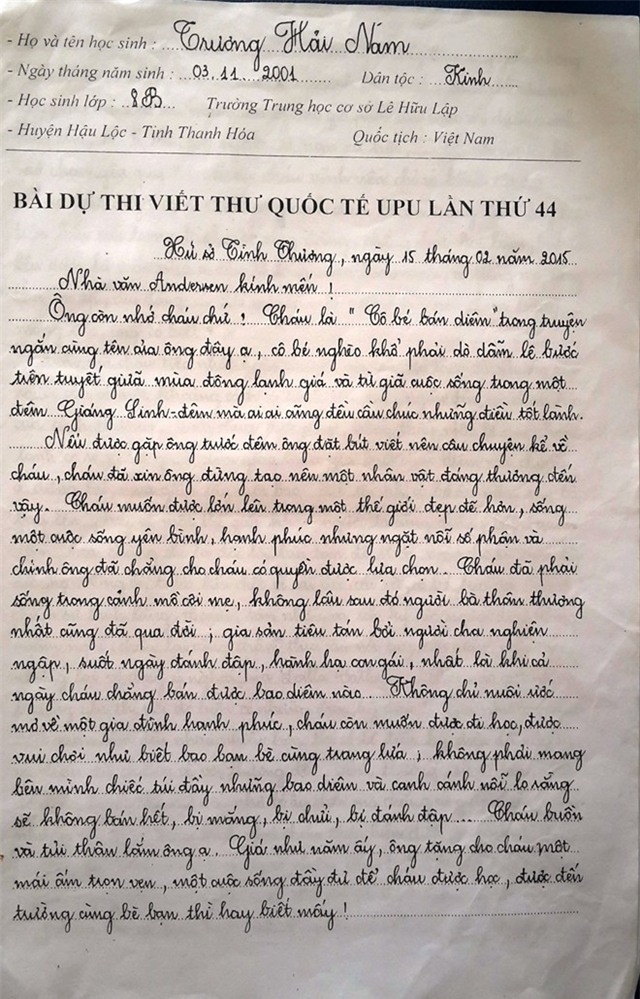 - Họ và tên học sinh : Trương Hải Nam
- Ngày tháng năm sinh : 03.11.2001 Dân tộc : Kinh
- Học sinh lớp : 8B Trường Trung học cơ sở Lê Hữu Lập
- Huyện Hậu Lộc - Tỉnh Thanh Hóa Quốc tịch : Việt Nam
BÀI DỰ THI VIẾT THƯ QUỐC TẾ UPU LẦN THỨ 44
Xứ sở Tình Thương, ngày 15 tháng 02 năm 2015
Nhà văn Andersen kính mến !
Ông còn nhớ cháu chứ ! Cháu là " Cô bé bán diêm" trong truyện
ngắn cùng tên của ông đây ạ, cô bé nghèo khổ phải dò dẫm lê bước
trên tuyết giữa mùa đông lạnh giá và từ giã cuộc sống trong một
đêm Giáng Sinh - đêm mà ai ai cũng đều cầu chúc những điều tốt lành.
Nếu được gặp ông trước đêm ông đặt bút viết nên câu chuyện kể về
cháu, cháu đã xin ông đừng tạo nên một nhân vật đáng thương đến
vậy. Cháu muốn được lớn lên trong một thế giới đẹp đẽ hơn, sống
một cuộc sống yên bình, hạnh phúc nhưng ngặt nỗi số phận và
chính ông đã chẳng cho cháu có quyền được lựa chọn. Cháu đã phải
sống trong cảnh mồ côi mẹ, không lâu sau đó người bà thân thương
nhất cũng đã qua đời ; gia sản tiêu tán bởi người cha nghiện
ngập, suốt ngày đánh đập, hành hạ con gái, nhất là khi cả
ngày cháu chẳng bán được bao diêm nào. Không chỉ nuôi ước
mơ về một gia đình hạnh phúc, cháu còn muốn được đi học, được
vui chơi như biết bao bạn bè cùng trang lứa ; không phải mang
bên mình chiếc túi đầy những bao diêm và canh cánh nỗi lo rằng
sẽ không bán hết, bị mắng, bị chửi, bị đánh đập... Cháu buồn
và tủi thân lắm ông ạ. Giá như năm ấy, ông tặng cho cháu một
mái ấm trọn vẹn, một cuộc sống đầy đủ để cháu được học, được đến
trường cùng bè bạn thì hay biết mấy !